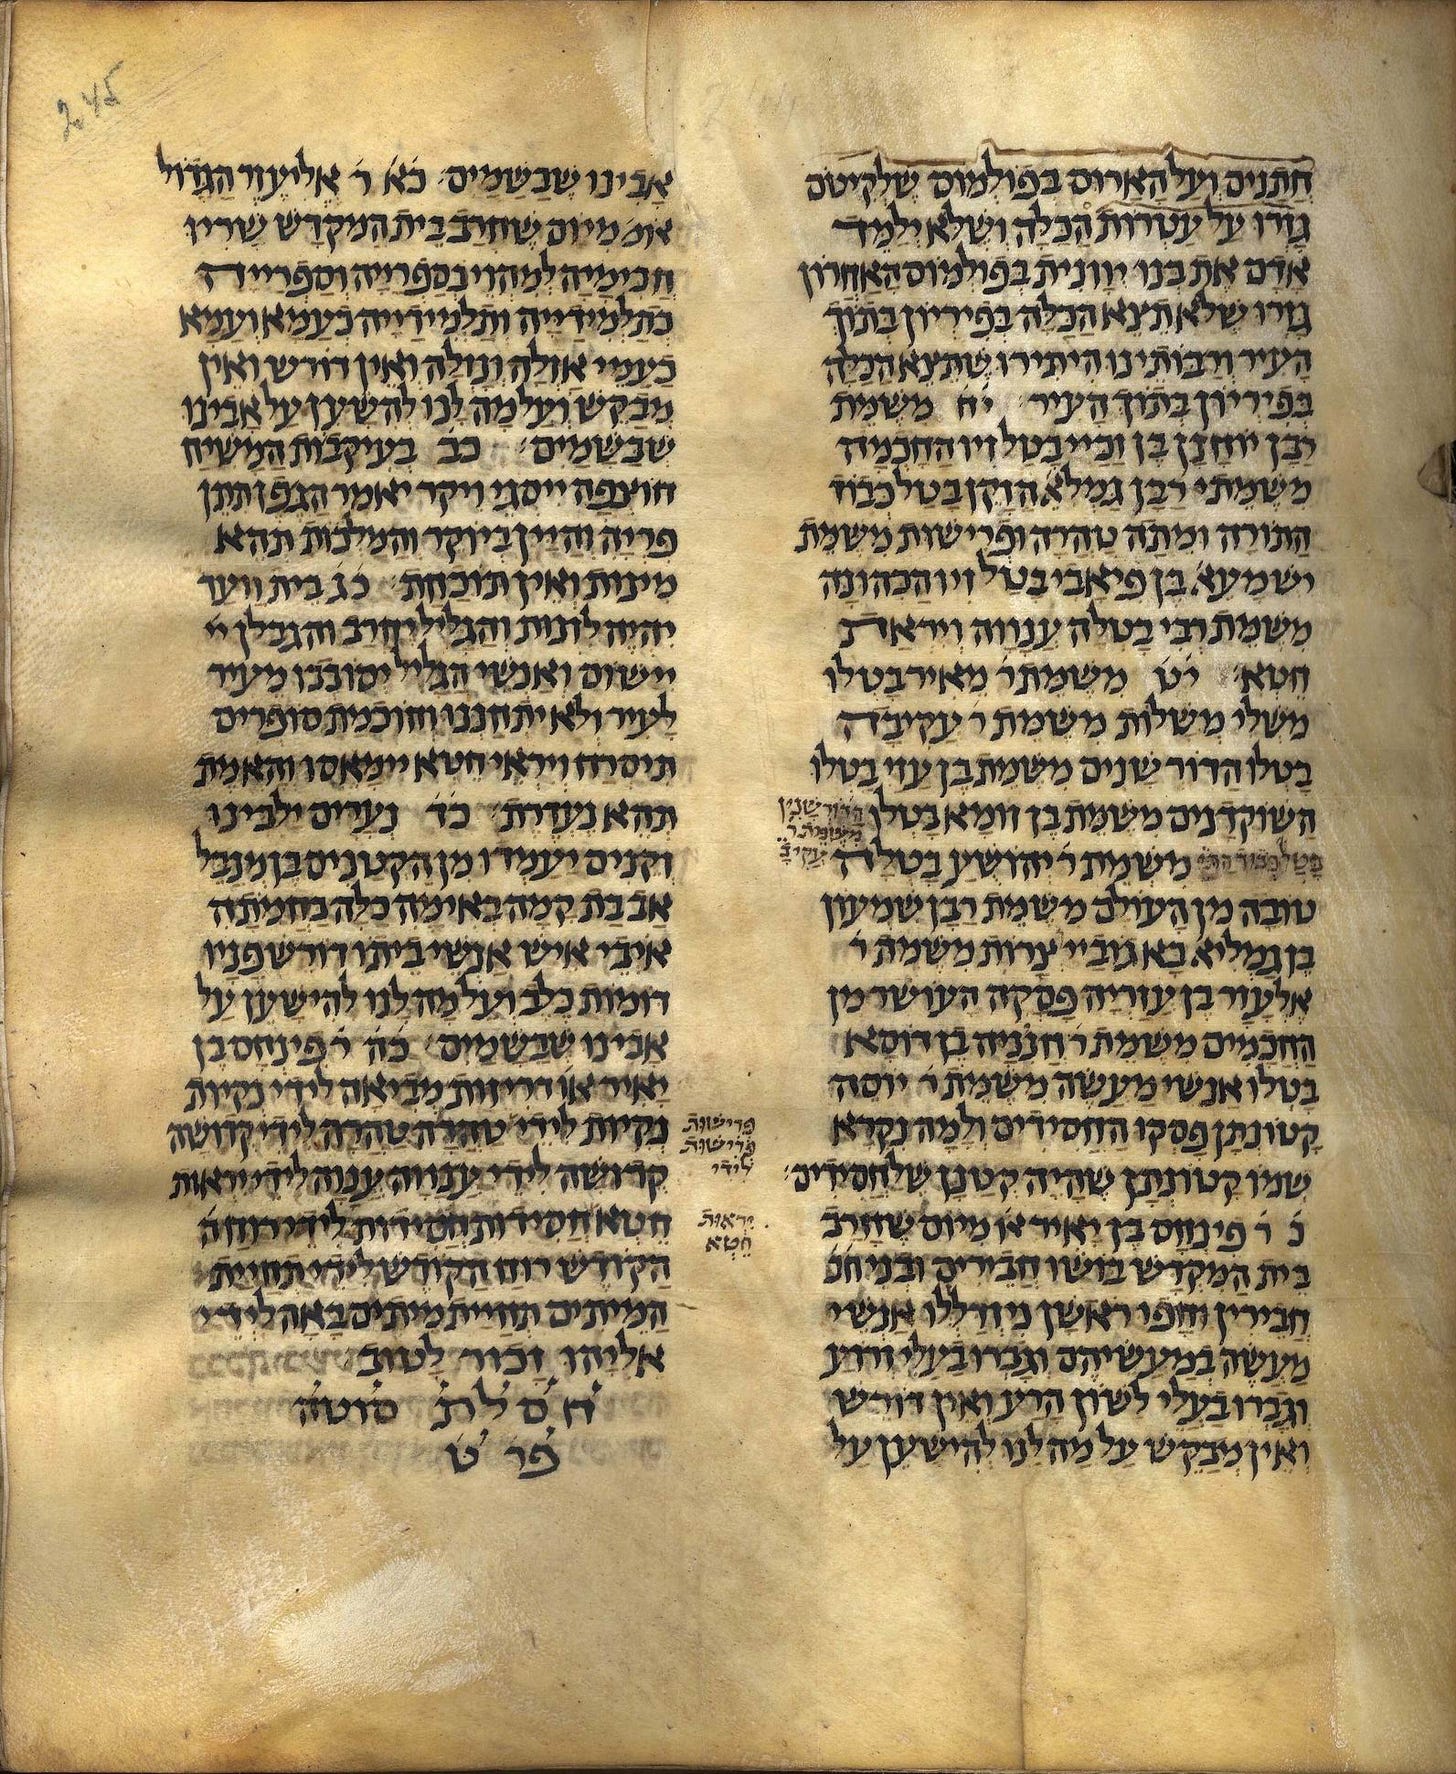 245
חתנים ועל הארוס בפולמוס שלקיטס
גזרו על עטרות הכלה ושלא ילמד
אדם את בנו יוונית בפולמוס האחרון
גזרו שלא תצא הכלה בפיריון בתוך
העיר ורבותינו היתירו שתצא הכלה
בפיריון בתוך העיר יח משמת
רבן יוחנן בן זכיי בטל זיו החכמה
משמת רבן גמליא הזקן בטל כבוד
התורה ומתה טהרה ופרישות משמת
ישמעא בן פיאבי בטל זיו הכהונה
משמת רבי בטלה ענווה ויראת
חטא יט משמת ר מאיר בטלו
משלי משלות משמת ר עקיבה
בטלו הדורשנים משמת בן עזי בטלו
השוקדנים משמת בן זומא בטלו
הדורשנין
משמת ר
עקיבה
בטל כבוד התו משמת ר יהושע בטלה
טובה מן העולם משמת רבן שמעון
בן גמליא בא גוביי וצרות משמת ר
אלעזר בן עזריה פסקה העושר מן
החכמים משמת ר חנניה בן דוסא
בטלו אנשי מעשה משמת ר יוסה
קטונתן פסקו החסידים ולמה נקרא
שמו קטונתן שהיה קטנן שלחסידים
כ ר פינחס בן יאיר או מיום שחרב
בית המקדש בושו חבירים ובני חו
חבירין וחפו ראשן נידללו אנשי
מעשה במעשיהם וגברו בעלי זרוע
וגברו בעלי לשון הרע ואין דורש
ואין מבקש על מה לנו להישען על
אבינו שבשמים כא ר אליעזר הגדול
אומ מיום שחרב בית המקדש שריו
חכימייה למהוי כספרייה וספרייה
כתלמידייה ותלמידייה כעמא ועמא
כעמי אזלה ונולה ואין דורש ואין
מבקש ועל מה לנו להשען על אבינו
שבשמים כב בעיקבות המשיח
חוצפה ייסגי ויקר יאמר הגפן תתן
פריה והיין ביוקר והמלכות תהא
מינות ואין תוכחת כג בית ווער
יהיה לזנות והגליל יחרב והגבלן יי
יישום ואנשי הגליל יסובבו מעיר
לעיר ולא יתחננו וחוכמת סופרים
תיסרח ויראי חטא יימאסו והאמת
תהא נעדרת כד נערים ילבינו
זקנים יעמדו מן הקטנים בן מנבל
אב בת קמה באימה כלה בחמתה
אויבי איש אנשי ביתו דור שפניו
דומות כלב ועל מה לנו להישען על
אבינו שבשמים כה ר פינחס בן
יאיר או זריזות מביאה לידי נקיות
נקיות לידי טהרה טהרה לידי קדושה
פרישות
פרישות
לידי
קדושה לידי ענווה ענוה לידי יראות
חטא חסידות חסידות לידי רוח ה
יראות
חטא
הקודש רוח הקודש לידי תחיית
המיתים תחיית מיתים באה לידי
אליהו זכור לטוב
ח ס ל ת סוטה
פר ט